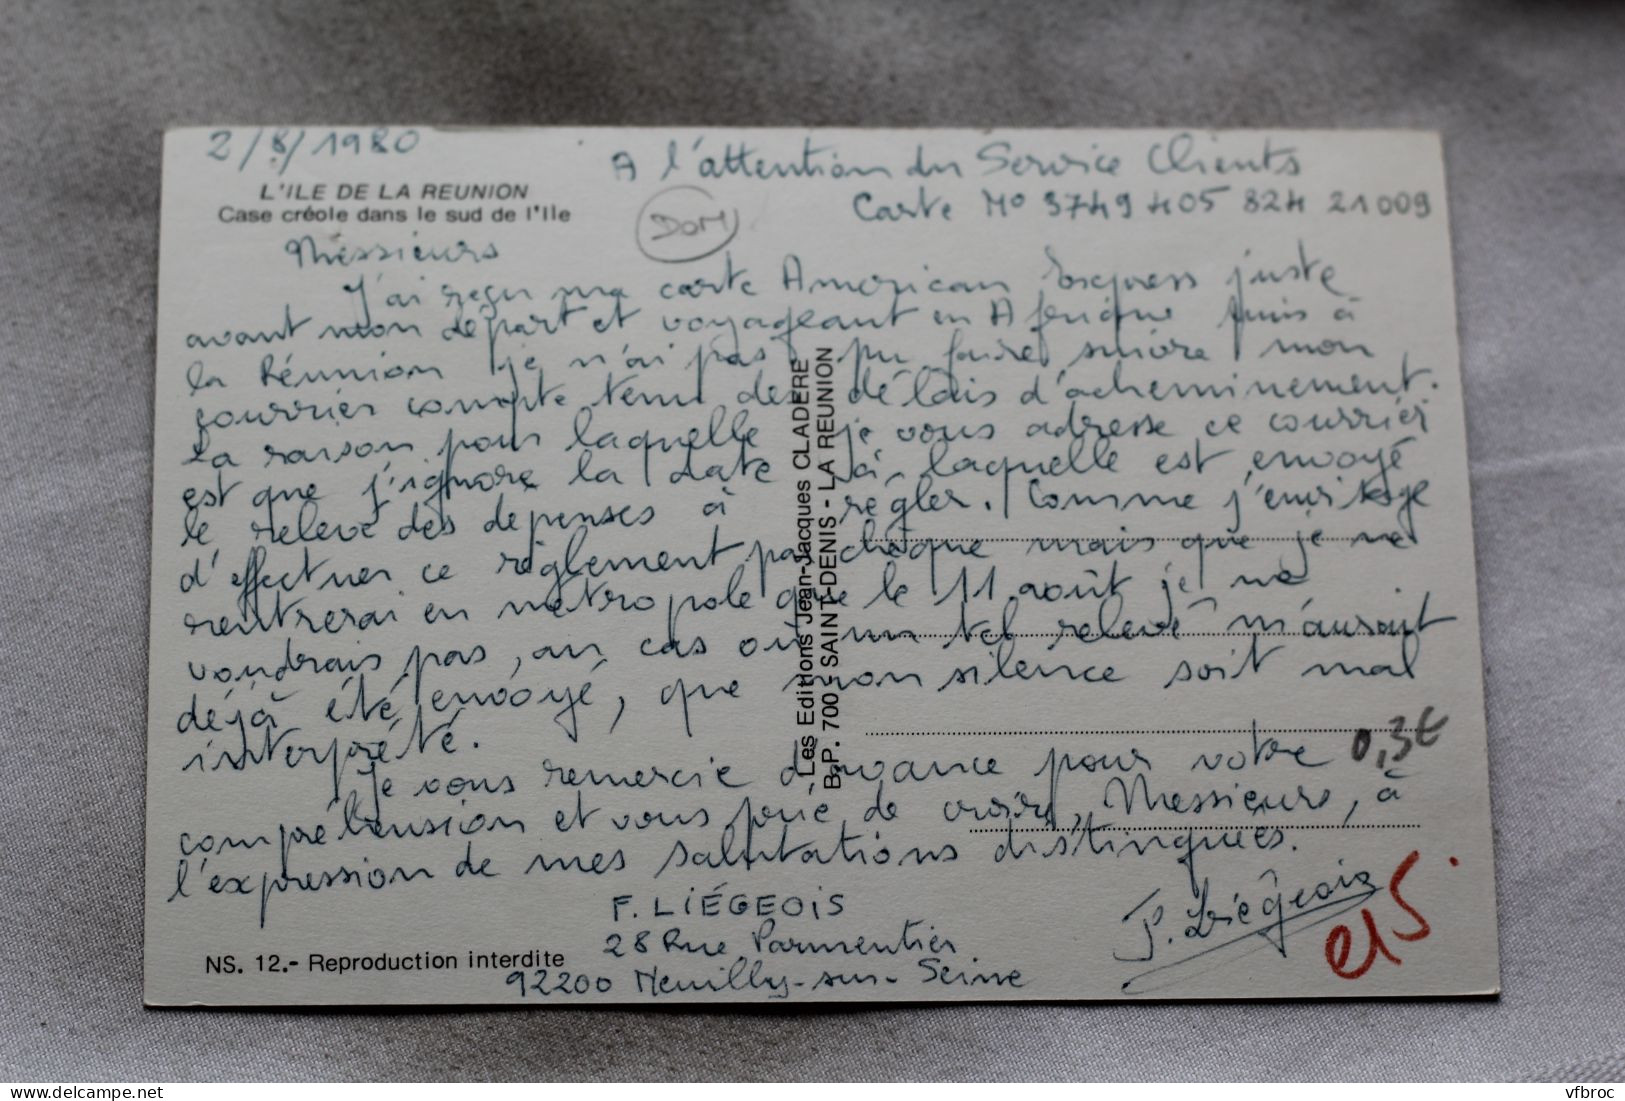 2/8/1980
A l'attention du Service Clients
L'ILE DE LA REUNION
Case créole dans le sud de l'Ile
DOM
Carte N° 3749 405 824 21009
Messieurs
J'ai reçu ma carte American Express juste
avant mon départ et voyageant en Afrique puis à
la Réunion je n'ai pas pu faire suivre mon
courrier compte tenu des délais d'acheminement.
La raison pour laquelle je vous adresse ce courrier
est que j'ignore la date à laquelle est envoyé
le relevé des dépenses à régler. Comme j'envisage
d'effectuer ce règlement par chèque mais que je ne
rentrerai en métropole que le 11 août je ne
voudrais pas, au cas où un tel relevé m'aurait
déjà été envoyé, que mon silence soit mal
interprété.
Je vous remercie d'avance pour votre
compréhension et vous prie de croire, Messieurs, à
l'expression de mes salutations distinguées.
0,3€
F. LIÉGEOIS
28 Rue Parmentier
92200 Neuilly-sur-Seine
F. Liégeois
NS. 12.- Reproduction interdite
Les Editions Jean-Jacques CLADERE
B.P. 700 - SAINT-DENIS - LA REUNION
vfbroc